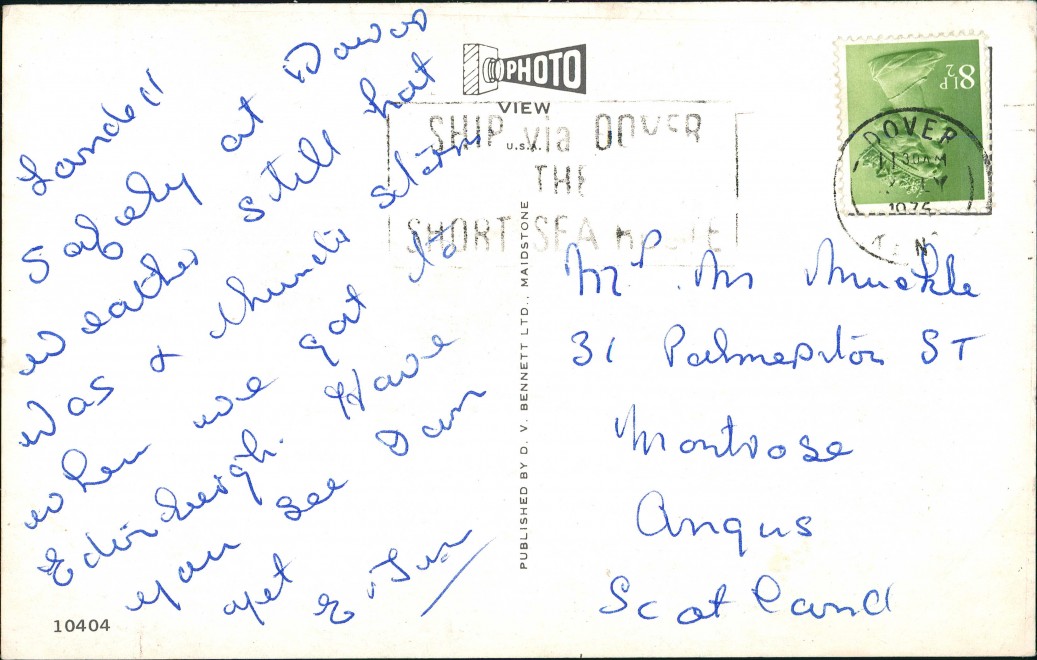 Landed
Safely at Dover
weather still hot
was & thunder storm
when we got to
Edinburgh. Have
you see Dam
yet
E. Jim
10404
PHOTO
VIEW
U.S.A.
SHIP via DOVER
THE
SHORT SEA ROUTE
PUBLISHED BY D. V. BENNETT LTD., MAIDSTONE
8½P
DOVER
30AM
KENT
Mr. M Muckle
31 Palmerston ST
Montrose
Angus
Scotland